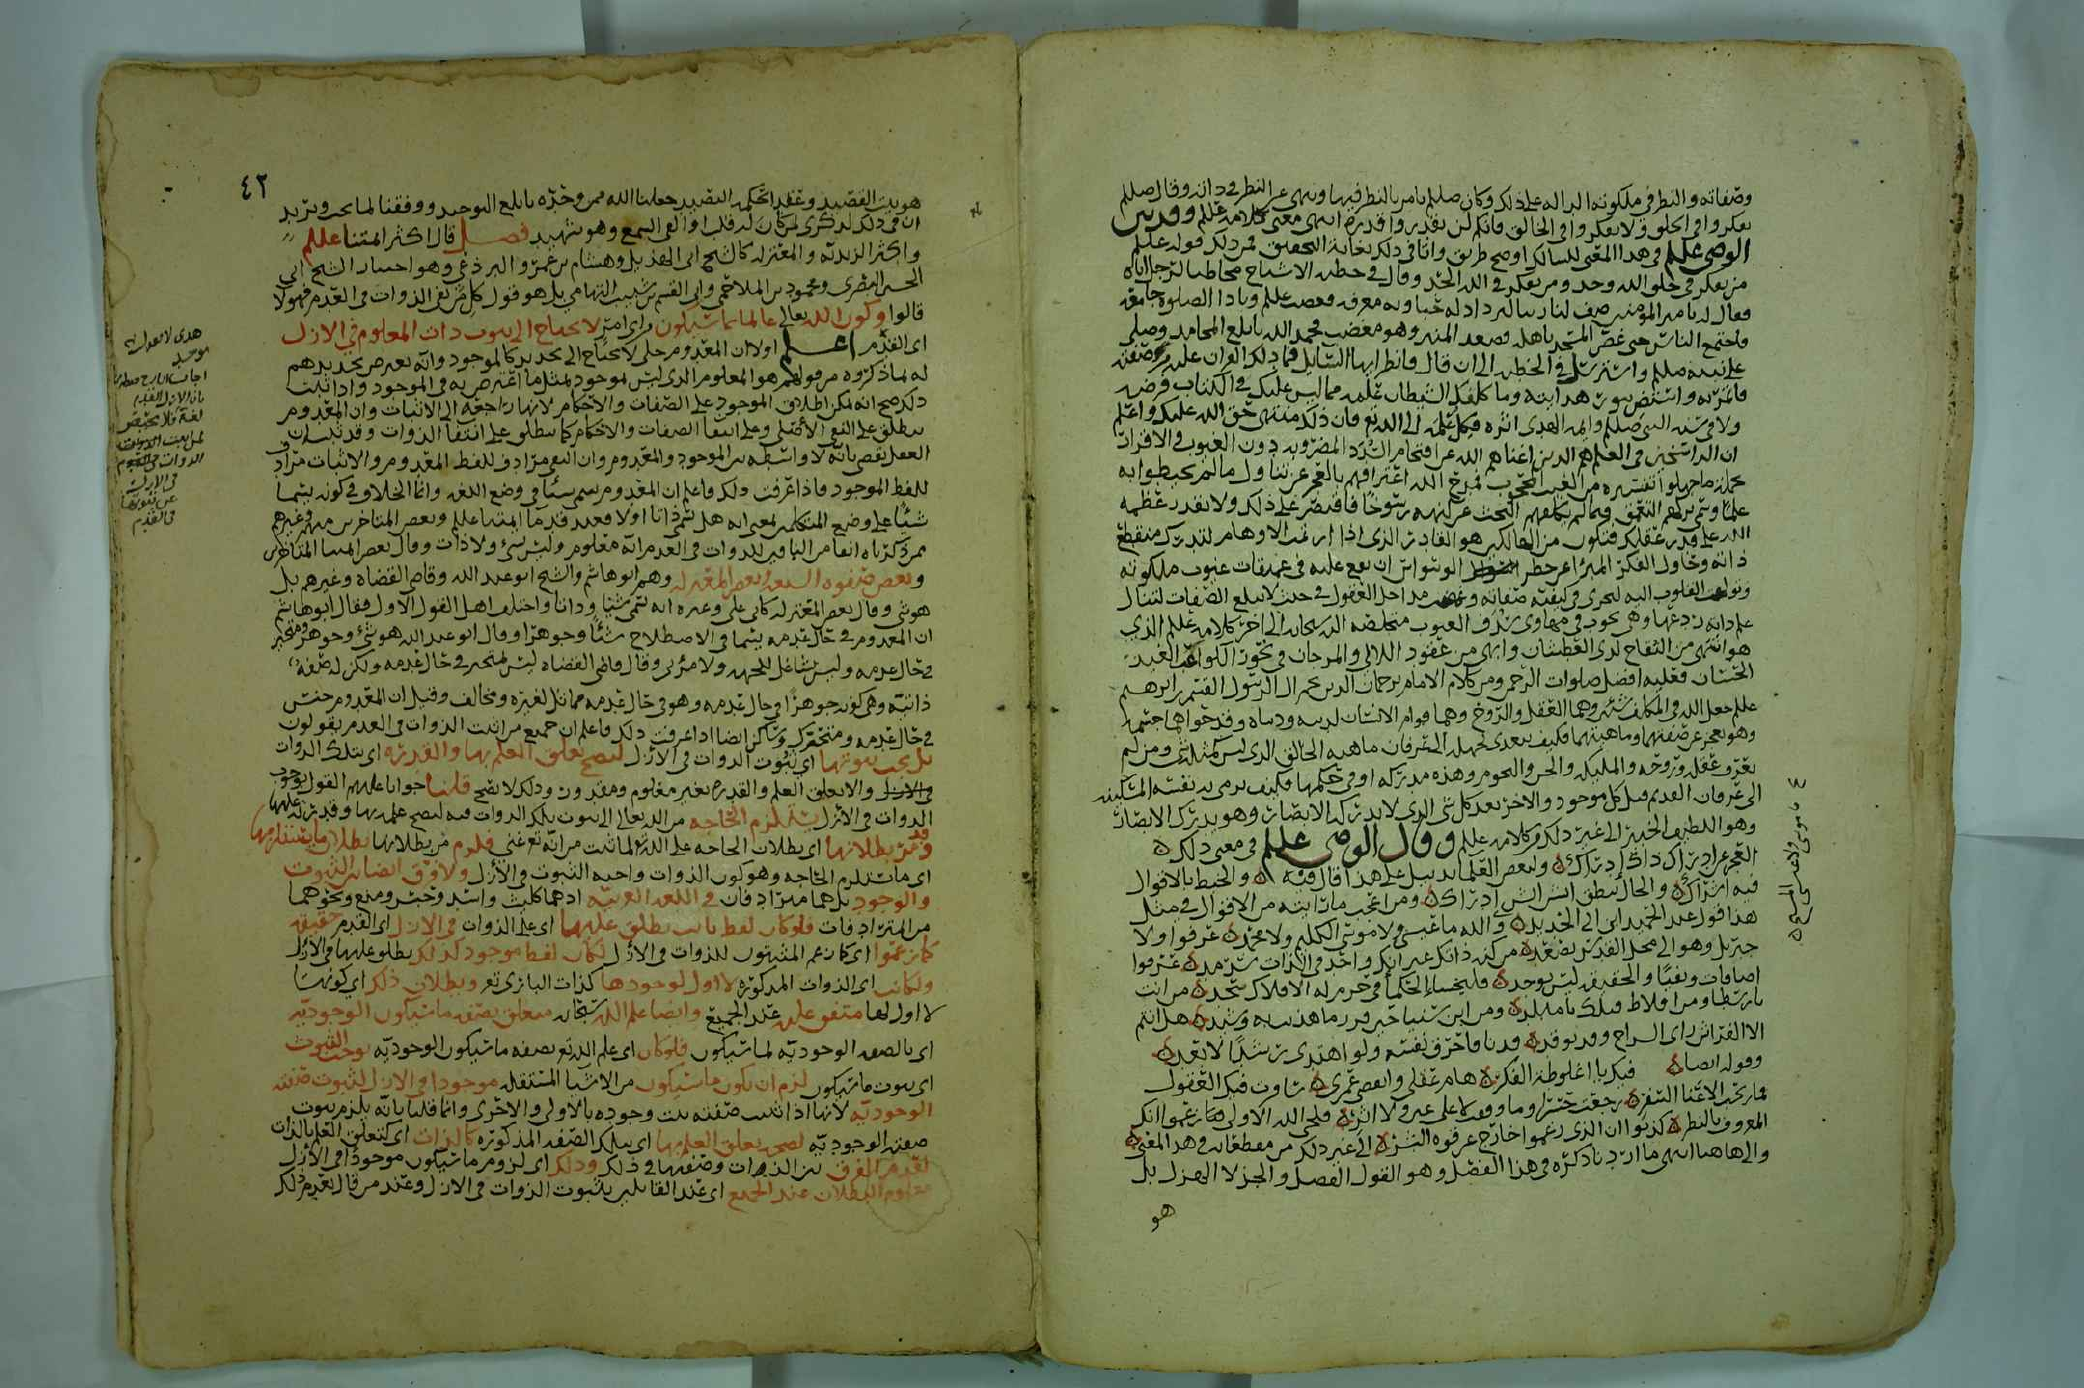 وصفاته والنظر في ملكوته الداله على ذلك وكان صللم يامر بالنظر فيها وينهى عن النظر في ذاته وقال صللم
تفكروا في الخلق ولا تفكروا في الخالق فانكم لن تقدروا قدره انتهى معنى كلامه عللم وقد بين
الوصي عللم في هذا المعنى للسالك اوضح طريق واتا في ذلك بغاية التحقيق فمن ذلك قوله عللم
من تفكر في خلق الله وحد ومن تفكر في الله الحد وقال في خطبه الاشباح مخاطبا لرجل اتاه
فقال له يا امير المؤمنين صف لنا ربنا لنزداد له حبا وبه معرفه فغضب عللم ونادا الصلوه جامعه
فاجتمع الناس حتى غص المسجد باهله فصعد المنبر وهو مغضب فحمد الله بابلغ المحامد وصلى
على نبيه صللم واسترسل في الخطبه الى ان قال فانظر ايها السايل فما دلك القران عليه من صفته
فائتم به واستضئ بنور هدايته وما كلفك الشيطان علمه مما ليس عليك في الكتاب فرضه
ولا في سنه النبي صللم وايمه الهدى اثره فكل علمه الى الله تع فان ذلك منتهى حق الله عليك واعلم
ان الراسخين في العلم هم الذين اغناهم الله عن اقتحام السدد المضروبه دون الغيوب في الاقرار
بجمله ما جهلوا تفسيره من الغيب المحجوب فمدح الله اعترافهم بالعجز عن تناول مالم يحيطوا به
علما وسمى تركهم التعمق فيما لم يكلفهم البحث عن كنهه رسوخا فاقتصر على ذلك ولا تقدر عظمه
الله على قدر عقلك فتكون من الهالكين هو القادر الذي اذا ارتمت الاوهام لتدرك منقطع
ذاته وحاول الفكر المبرا من خطر الوسواس ان يقع عليه في عميقات غيوب ملكوته
وتولهت القلوب اليه لتجري في كيفيه صفاته وغمضت مداخل العقول في حيث لا تبلغ الصفات لتنال
علم ذاته ردعها وهي تجوب في مهاوي سدف الغيوب متخلصه اليه سبحانه الى اخر كلامه عللم الذي
هو اشهى من النقاح لدى العطشان وابهى من عقود اللالي والمرجان في نحور الكواعب الغيد
الحسان فعليه افضل صلوات الرحمن ومن كلام الامام ترجمان الدين نجم ال الرسول القسم بن ابرهيم
عللم جعل الله في المكلف شيئين وهما العقل والروح وهما قوام الانسان لدينه ودنياه وقد حواهما جسمه
وهو يعجز عن صفتهما وماهيتهما فكيف يتعدى بجهله الى عرفان ماهيه الخالق الذي ليس كمثله شي ومن لم
يعرف عقله وروحه والمليكه والجن والنجوم وهذه مدركه او في حكمها فكيف يرمي به نفسه المسكينه
الى عرفان القديم قبل كل موجود والاخر بعد كل شي الذي لا تدركه الابصار وهو يدرك الابصار
وهو اللطيف الخبير الى غير ذلك من كلامه عللم وقال الوصي عللم في معنى ذلك ه
العجز عن درك الادراك ادراك ه ولبعض العلما تذييل على هذا قال فيه ه والخبط بالاقوال
فيه اشراك ه والحال ينطق ان السر ادراك ه ومن اعجب ما رايته من الاقوال في مثل
هذا قول عبد الحميد ابن ابي الحديد ه والله ما عيسى ولا موسى الكليم ولا محمد ه عرفوا ولا
جبريل وهو الى محل القدس يصعد ه من كنه ذاتك غير انك واحد في الذات سرمد ه عرفوا
اضافات ونفيا والحقيقه ليس توجد ه فليخسا الحكما في حرم له الافلاك تسجد ه من انت
يا رسطا ومن افلاط قبلك يا مبلد ه ومن ابن سينا حين قرر ما هذيت به وشيد ه هل انتم
الا الفراش راى السراج وقد توقد ه فدنا فاحرق نفسه ولو اهتدى رشدا لابعد ه
وقوله ايضا ه فيك يا اغلوطه الفكر ه هام عقلي وانقضى عمري ه سافرت فيك العقول
فما ربحت الا عنا السفر ه رجعت حسرا وما وقفت لا على عين ولا اثر ه فلحى الله الاولى زعموا انك
المعروف بالنظر ه كذبوا ان الذي زعموا خارج عن قوه البشر ه الى غير ذلك من مقطعاته في هذا المعنى ه
والى هاهنا انتهى ما اردنا ذكره في هذا الفصل وهو القول الفصل والجزل لا الهزل بل
هو
ما موسى ولا عيسى المسيح ه
٤٢
هو بيت القصيد وعقد الحكمه النضيد جعلنا الله ممن وحده بابلغ التوحيد ووفقنا لما يحب ويريد
ان في ذلك لذكرى لمن كان له قلب او القى السمع وهو شهيد فصل قال اكثر ايمتنا عللم
واكثر الزيديه والمعتزله كالشيخ ابي الهذيل وهشام بن عمرو والبرذعي وهو اختيار الشيخ ابي
الحسين البصري ومحمود بن الملاحمي وابي القسم بن شبيب التهامي بل هو قول كل من نفى الذوات في العدم فهولا
قالوا وكون الله تعالى عالما بما سيكون وراى امر لا يحتاج الى ثبوت ذات المعلوم في الازل
اي القدم اعلم اولا ان المعدوم جلي لا يحتاج الى تحديد كالموجود وانه يعترض تحديدهم
له لما ذكروه من قولهم هو المعلوم الذي ليس لموجود بمثل ما اعترض به في الموجود واذا ثبت
ذلك صح انه يمكن اطلاق الموجود على الصفات والاحكام لانها راجعه الى الاثبات وان المعدوم
يطلق على النفي الاصلي وعلى انتفا الصفات والاحكام كما يطلق على انتفا الذوات وقد ثبت ان
العقل يقضي بانه لا واسطه بين الموجود والمعدوم وان النفي مرادف للفظ المعدوم والاثبات مرادف
للفظ الموجود فاذا عرفت ذلك فاعلم ان المعدوم يسمى شيئا في وضع اللغه وانما الخلاف في كونه يسما
شيئا على وضع المتكلمين بمعنى انه هل يسمى ذاتا اولا فعند قدما ايمتنا عللم وبعض المتاخرين منهم وغيرهم
ممن ذكرناه انفا من النافين للذوات في العدم انه معلوم وليس بشي ولا ذات وقال بعض ايمتنا المتاخرين
وبعض صفوه الشيعه وبعض المعتزله وهم ابو هاشم والشيخ ابو عبد الله وقاضي القضاه وغيرهم بل
هو شي وقال بعض المعتزله كابي علي وغيره انه يسمى شيئا وذاتا واختلف اهل القول الاول فقال ابو هاشم
ان المعدوم في حال عدمه يسما في الاصطلاح شيئا وجوهرا وقال ابو عبد الله هو شي وجوهر ومتحيز
في حال عدمه وليس بشاغل للجهه ولا مرئ وقال قاضي القضاه ليس بمتحيز في حال عدمه ولكن له صفه
ذاتيه وهي كونه جوهرا في حال عدمه وهو في حال عدمه مماثل لغيره ومخالف وقيل ان المعدوم جسم
في حال عدمه ومتحرك وساكن ايضا اذا عرفت ذلك فاعلم ان جميع من اثبت الذوات في العدم يقولون
بل يجب ثبوتها اي ثبوت الذوات في الازل ليصح تعلق العلم بها والقدره اي بتلك الذوات
والا تعلق العلم والقدره بغير معلوم ومقدور وذلك لا يصح قلنا جوابا عليهم القول بوجوب
الذوات في الازل يستلزم الحاجه من الله تعالى الى ثبوت تلك الذوات فيه ليصح علمه بها وقدرته عليها
وقد مر بطلانها اي بطلان الحاجه على الله تع لما ثبت من انه تع غني فلزم من بطلانها بطلان ما يستلزمها
اي ما يستلزم الحاجه وهو كون الذوات واجبه الثبوت في الازل ولا فرق ايضا بين الثبوت
والوجود بل هما مترادفان في اللغه العربيه اذ هما كليث واسد وحبس ومنع ونحوهما
من المترادفات فلو كان لفظ ثابت يطلق عليها اي على الذوات في الازل اي القدم حقيقه
كما زعموا اي كما زعم المثبتون للذوات في الازل لكان لفظ موجود كذلك يطلق عليها في الازل
ولكانت اي الذوات المذكوره لا اول لوجودها كذات الباري تع وبطلان ذلك اي كونها
لا اول لها متفق عليه عند الجميع وايضا علم الله سبحانه متعلق بصفه ما سيكون الوجوديه
اي بالصفه الوجوديه لما سيكون فلو كان اي علم الله تع بصفه ما سيكون الوجوديه يوجب الثبوت
اي ثبوت ما سيكون لزم ان يكون ما سيكون من الاشيا المستقبله موجودا في الازل لثبوت صفته
الوجوديه لانها اذا ثبتت صفته ثبت وجوده بالاولى والاحرى وانما قلنا بانه يلزم ثبوت
صفته الوجوديه ليصح تعلق العلم بها اي بتلك الصفه المذكوره كالذات اي كتعلق العلم بالذات
لعدم الفرق بين الذوات وصفتها في ذلك وذلك اي لزوم ما سيكون موجودا في الازل
معلوم البطلان عند الجميع اي عند القائلين بثبوت الذوات في الازل وعند من قال بعدم ذلك